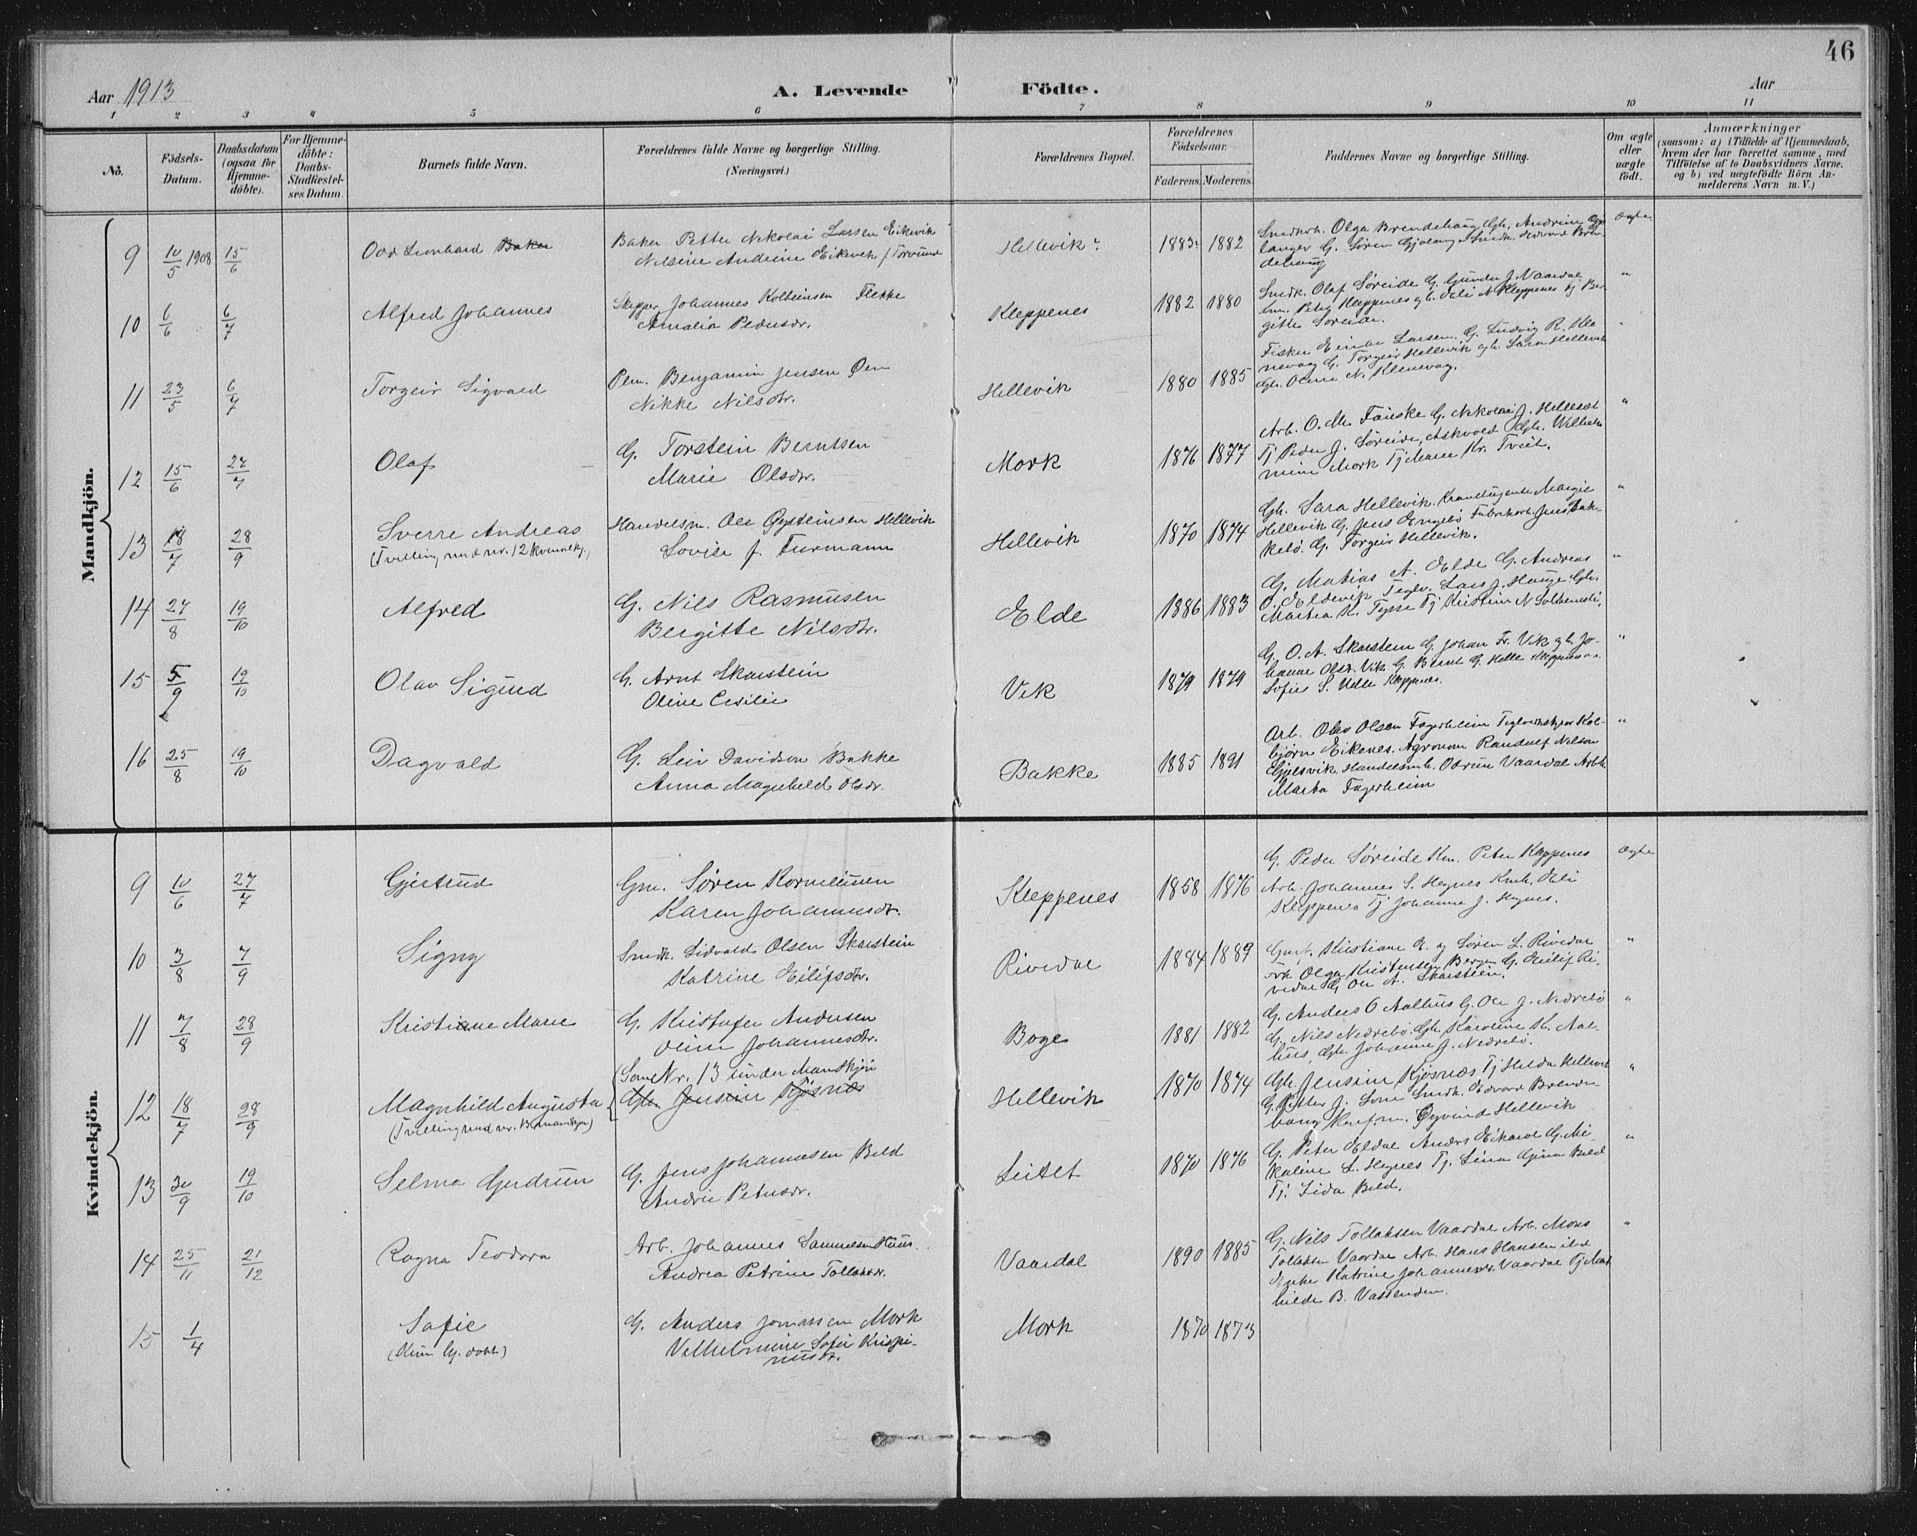 46
Aar 1913
A. Levende Födte.
Aar
1 2 3 4 5 6 7 8 9 10 11
No.
Födsels-
Datum.
Daabsdatum
(ogsaa for
Hjemme-
döbte).
For Hjemme-
döbte:
Daabs-
Stadfæstel-
ses Datum
Barnets fulde Navn.
Forældrenes fulde Navne og borgerlige Stilling.
(Næringsvei.)
Forældrenes Bopæl.
Forældrenes
Födselsaar.
Faderens. Moderens.
Faddernes Navne og borgerlige Stilling.
Om ægte
eller
uægte
födt.
Anmærkninger
(saasom: a) i Tilfælde af Hjemmedaab,
hvem der har forrettet samme, med
Tilföielse af to Daabsvidners Navne,
og b) ved uægtefödte Börn An-
melderens Navn m. V.)
Mandkjön.
9 10/5 1908 15/6 Odd Leonhard Baker
Baker Petter Nikolai Larsen Eikevik
Nilsine Andrine Eikevik f. Torvund
Hellevik 1883 1882
Smedkh. Olga Brendehaug Gh. Andrine Gjø-
langer G. Søren Gjølanger Smedk. Edvard Bren-
dehaug
ægte
10 6/6 6/7 Alfred Johannes
Skipper Johannes Kolbeinsen Flekke
Amalia Pedersdr.
Kleppenes 1882 1880
Smedk. Olaf Søreide G. Gunder J. Vaardal
Km. Peter Kleppenes gh. Eli N. Kleppenes Tj Ber-
gitte Søreide.
"
11 23/5 6/7 Torgeir Sigvald
Plm. Benjamin Jensen Øen
Nikke Nilsdtr.
Hellevik 1880 1885
Fisker Einar Larsen G. Ludvig R. Kle
nevag G. Torgeir Hellevik gh. Sara Hellevik
Gh. N. Klenevag.
12 15/6 27/7 Olaf
G. Torstein Berntsen
Marie Olsdtr.
Mork 1876 1877
Arb. O. M. Fauske G. Nikolai J. Hellesæt
Tj Peder J. Søreide, Askvold Gh. Wilhel-
mine Mork Tj Maren Kr. Tveit.
"
13 18/7 28/9 Sverre Andreas
(Tvilling med nr. 12 kvindekj.)
Handelsm. Ole Øysteinsen Hellevik
Lovise f. Furmann
Hellevik 1870 1874
Gh. Sara Hellevik. Margit
Hellevik G. Jens Engebø Fabrikarb. Jens Bak-
kebø. G. Torgeir Hellevik.
"
14 27/8 19/10 Alfred
G. Nils Rasmusen
Bergitte Nilsdtr.
Elde 1886 1883
G. Matias A. Elde G. Andreas
O. Eldevik Teglv. Lars J. Hauge Gh.
Martha K. Tysse Tj Kristin N
"
15 5/9 19/10 Olav Sigurd
G. Arnt Skarstein
Oline Cesilie
Vik 1879 1879
G. O. A. Skarstein G. Johan Fr. Vik gh. Jo-
hanne Olsdr. Vik G. Bernt G. Helle Kleppenes
Sofie S. Helle Kleppenes.
"
16 25/8 19/10 Dagvald
G. Leiv Davidson Bakke
Anna Magnhild Olsdr.
Bakke 1885 1891
Arb. Olav Olsen Fagerheim Teglverksbestyrer Kol-
bjørn Eikenes. Agronom Randulf Nilsen
Gjelsvik Handelsmh. Odrun Vaardal Arbh
Marta Fagerheim
"
Kvindekjön.
9 10/6 27/7 Gjertrud
Gm. Søren Korneliussen
Karen Johannesdr.
Kleppenes 1858 1876
G. Peder Søreide Km. Peter Kleppenes
Arb. Johannes S. Høynes Kmh. Eli
Kleppenes Tj Johanne J. Høynes.
ægte
10 3/8 7/9 Signy
Smedk. Sidvald Olsen Skarstein
Katrine Eilifsdr.
Rivedal 1884 1889
Gart. Kristiane E. og Søren L. Rivedal
Frk Olga Kristensen Bergen G. Eilif Ri-
vedal G. Ole A. Skarstein.
"
11 7/8 28/9 Kristiane Marie
G. Kristofer Andersen
Oline Johannesdtr.
Boge 1881 1882
G. Anders O Aalhus G. Ole J. Nedrebø
G. Nils Nedrebø Gh. Karoline K. Aal-
hus, Gh. Johanne J. Nedrebø.
"
12 18/7 28/9 Magnhild Augusta
(Tvilling med nr. 13 mandkjøn)
Som Nr. 13 under Mandkjøn
Gh. Jensine Kjøsnæs
Hellevik 1870 1874
Gh. Jensine Kjøsnæs Tj Hilda Hellevik
G. Petter J. Smedk. Edvard Brende-
haug Øyvind Hellevik
"
13 30/9 19/10 Selma Gudrun
G. Jens Johannesen Beld
Andrie Petersdr.
Leitet 1870 1876
G. Peter Eldal Anders Eikaas G. Mi-
kaline L. Høynes Tj. Lina Gjina Beld
Tj. Lida Beld.
"
14 25/11 21/12 Ragna Teodora
Arb. Johannes Samuelsen Huus.
Andrea Petrine Tollaksdr.
Vaardal 1890 1885
G. Nils Tollaksen Vaardal Arb. Mons
Tollaksen Vaardal Arb. Hans Hansen ibd
Enke Katrine Johannesdr. Vaardal Tj Mat
hilde B. Vassenden.
"
15 1/4 Sofie
(Kun hj. døbt)
G. Anders Jonassen Mork
Vilhelmine Sofie Krispi-
nusdr.
Mork 1870 1873